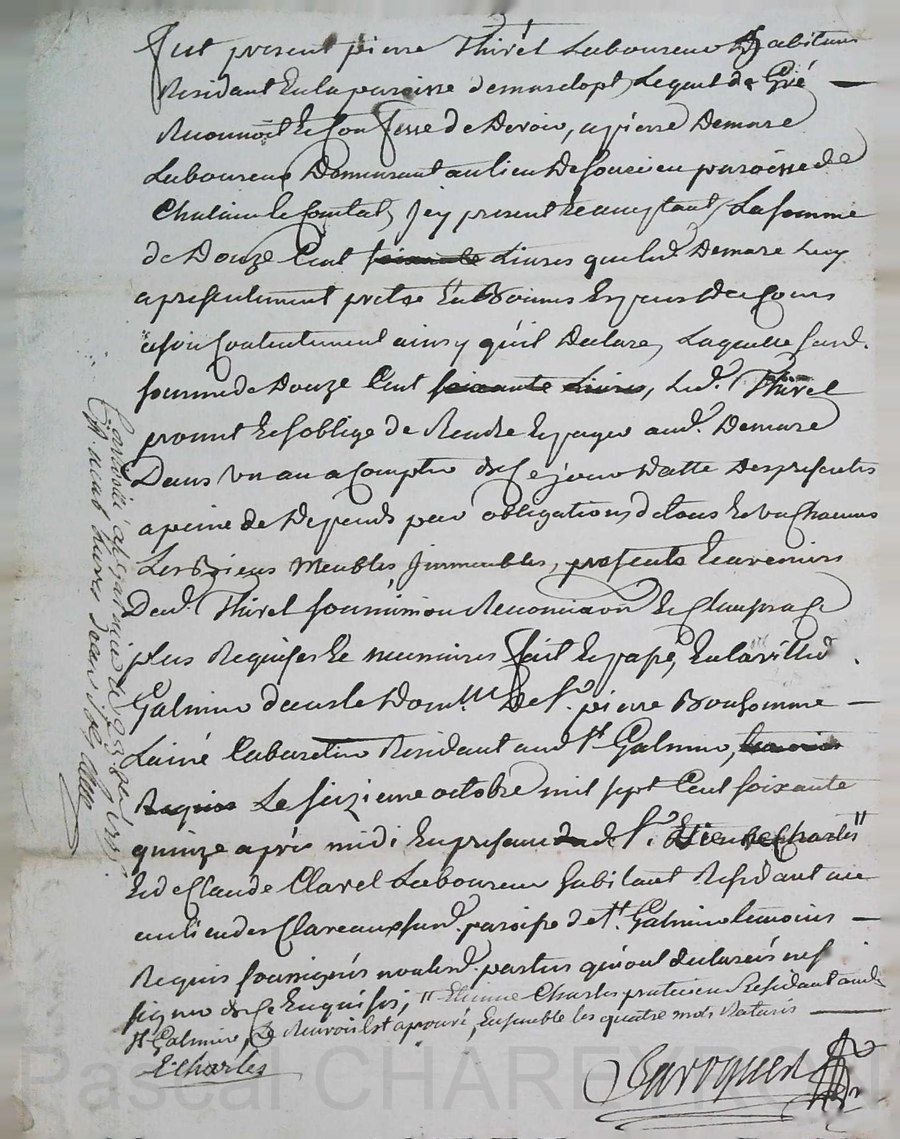 fut present pierre Thirel Laboureur habitant
Residant En la paroisse de marclopt, Lequel de Gré
Reconnoit Et Confesse de Devoir, a pierre Demare
Laboureur Demeurant au lieu De paroisse de
Chalain le Comtal, Icy present Et acceptant, La somme
de Douze Cent Livres que led. Demare Luy
a presentement pretsé En Bonnes Especes De Cours
a son Contentement ainsy qu'il Declare, Laquelle Susd.
somme de Douze Cent soixante Livres, Led. Thirel
promet Et soblige de Rendre Et payer aud. Demare
Dans Un an a Compter de Ce jour Datte Des presentes
a peine de Depends par obligations de tous Et Un Chacuns
Les Biens Meubles Immeubles, presents Et avenirs
Dud. Thirel soumission Renonciaon Et Clauses a Ce
plus Requises Et necessaires fait Et passé, En la ville de
Galmier dans le Domlle De Sr. pierre Bonhomme
Lainé Cabaretier Residant aud St Galmier,
Requis Le seizieme octobre mil sept Cent soixante
quinze aprés midi En presence de Sr. Etienne Charles "
Et de Claude Clavel Laboureur habitant Residant au
au lieu des Claveaux susd. paroisse de St. Galmier temoins
Requis soussignés non lesd. parties qui ont declarés ne s
signer de Ce Enquises; " Etienne Charles praticien Residant aud.
St Galmier, Le Renvois Est aprouvé, Ensemble les quatre mots Raturés
E Charles
Pascal CHAREYRON
Controllé a St galmier le